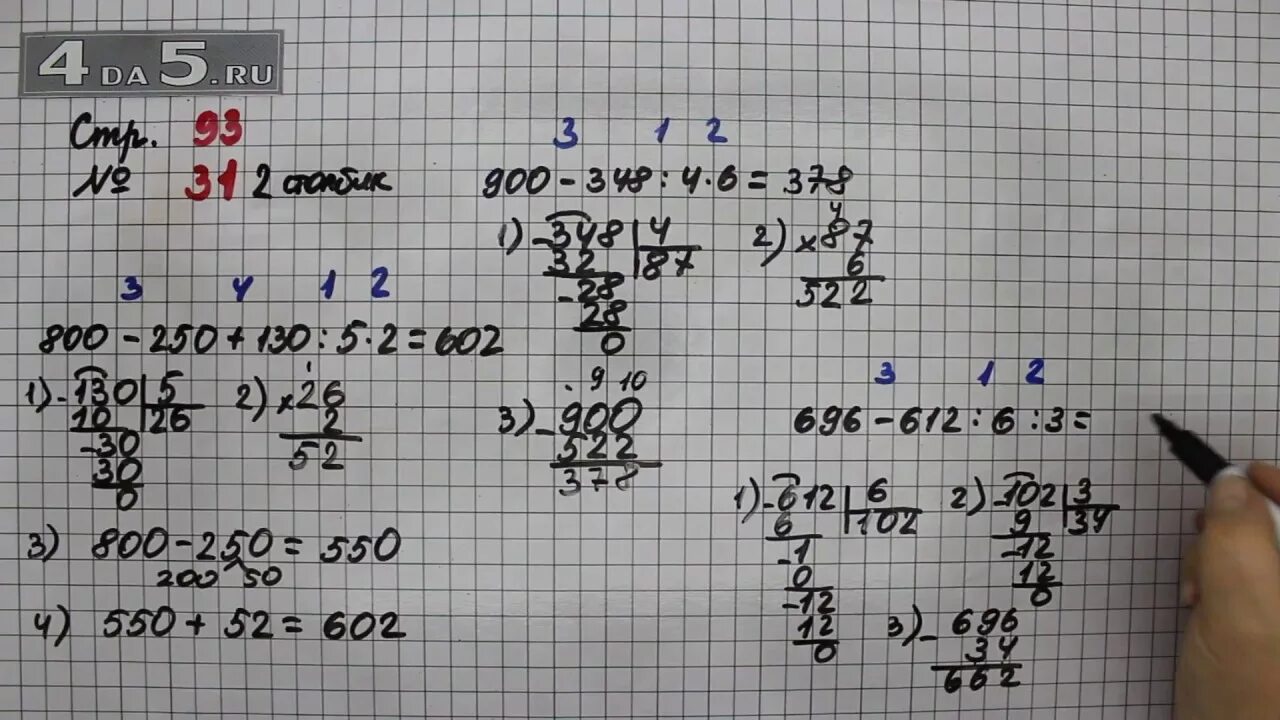 4DA5.RU
Стр. 93
№ 31 2 столбик
3 4 1 2
800 - 250 + 130 : 5 · 2 = 602
1) - 130 | 5
10 | 26
- 30
30
0
2) 1
× 26
2
52
3) 800 - 250 = 550
200 50
4) 550 + 52 = 602
3 1 2
900 - 348 : 4 · 6 = 378
1) - 348 | 4
32 | 87
- 28
28
0
2) 4
× 87
6
522
. 9 10
3) - 900
522
378
3 1 2
696 - 612 : 6 : 3 =
1) - 612 | 6
6 | 102
- 1
0
- 12
12
0
2) - 102 | 3
9 | 34
- 12
12
0
3) - 696
34
662